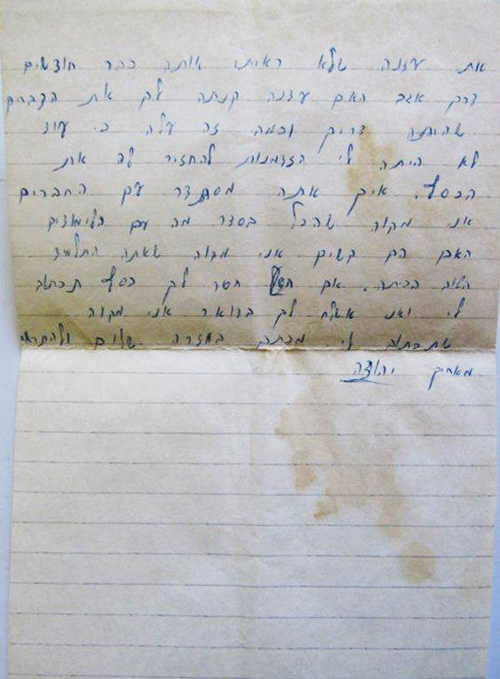 את עדנה שלא ראיתי אותה כבר חודשים
דרך אגב האם עדנה קנתה לך את הדברים
שהיתה צריכ וכמה זה עלה כי עוד
לא היתה לי הזדמנות להחזיר לה את
הכסף. איך אתה מסתדר עם החברים
אני מקוה שהכל בסדר מה עם הלימודים
האם הם קשים אני מקוה שאתה התלמיד
הטוב בכיתה. אם חסר לך כסף תכתוב
לי ואני אשלח לך בדואר אני מקוה
שתכתוב לי מכתב בחזרה שלום ולהתראות
מאחיך יהודה